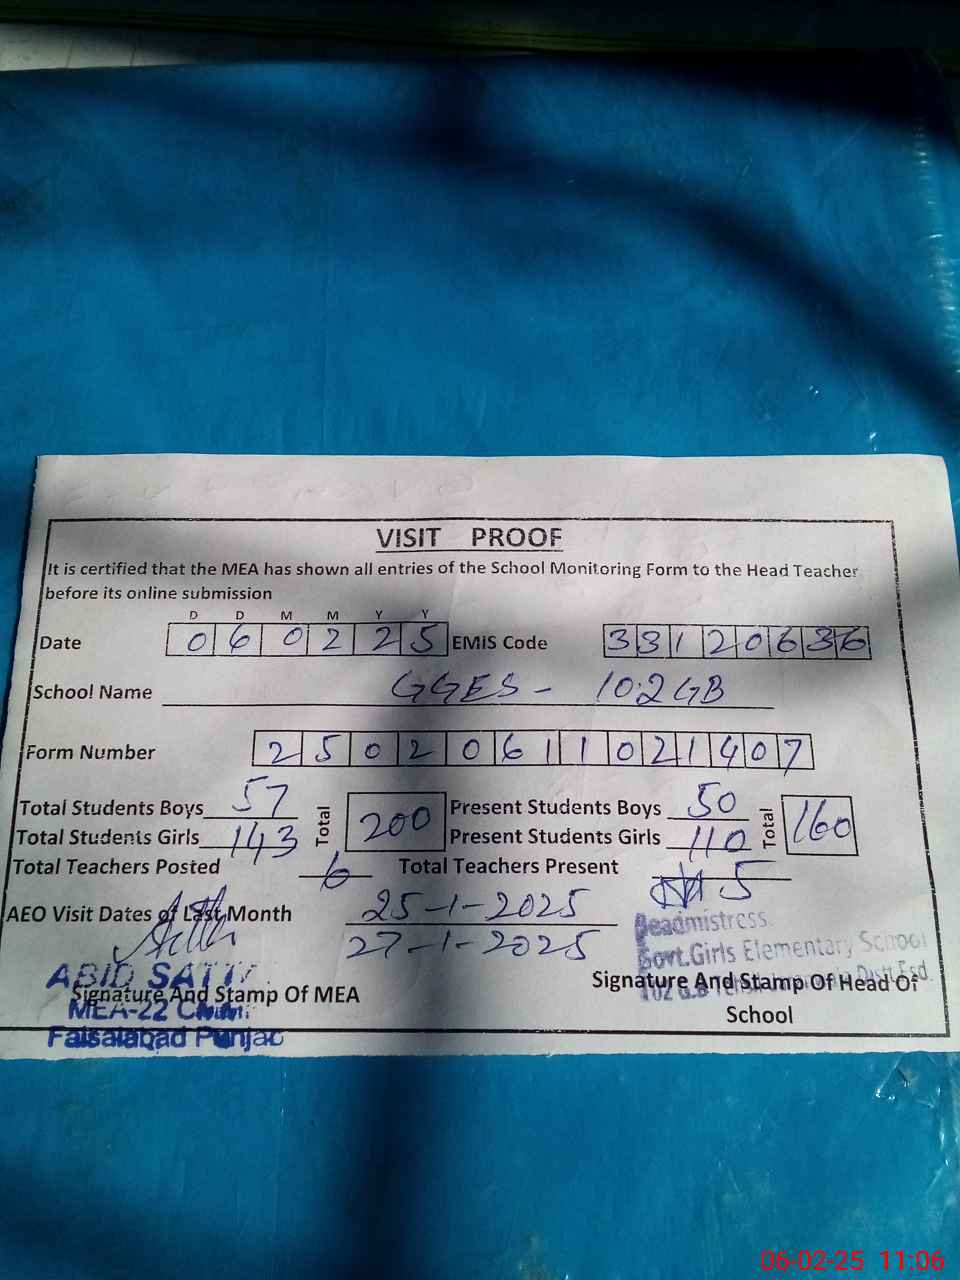 VISIT PROOF
It is certified that the MEA has shown all entries of the School Monitoring Form to the Head Teacher
before its online submission
D D M M Y Y
Date 0 6 0 2 2 5 EMiS Code 3 3 1 2 0 6 3 6
School Name GGES - 102 GB
Form Number 2 5 0 2 0 6 1 1 0 2 1 4 0 7
Total Students Boys 57 Total 200 Present Students Boys 50 Total 160
Total Students Girls 143 Present Students Girls 110
Total Teachers Posted 6 Total Teachers Present 5
AEO Visit Dates of Last Month 25-1-2025
27-1-2025
Headmistress
Govt.Girls Elementary School
102 G.B Distt Fsd.
Signature And Stamp Of Head Of
School
ABID
Signature And Stamp Of MEA
MEA-22
Faisalabad Punjab
06-02-25 11:06